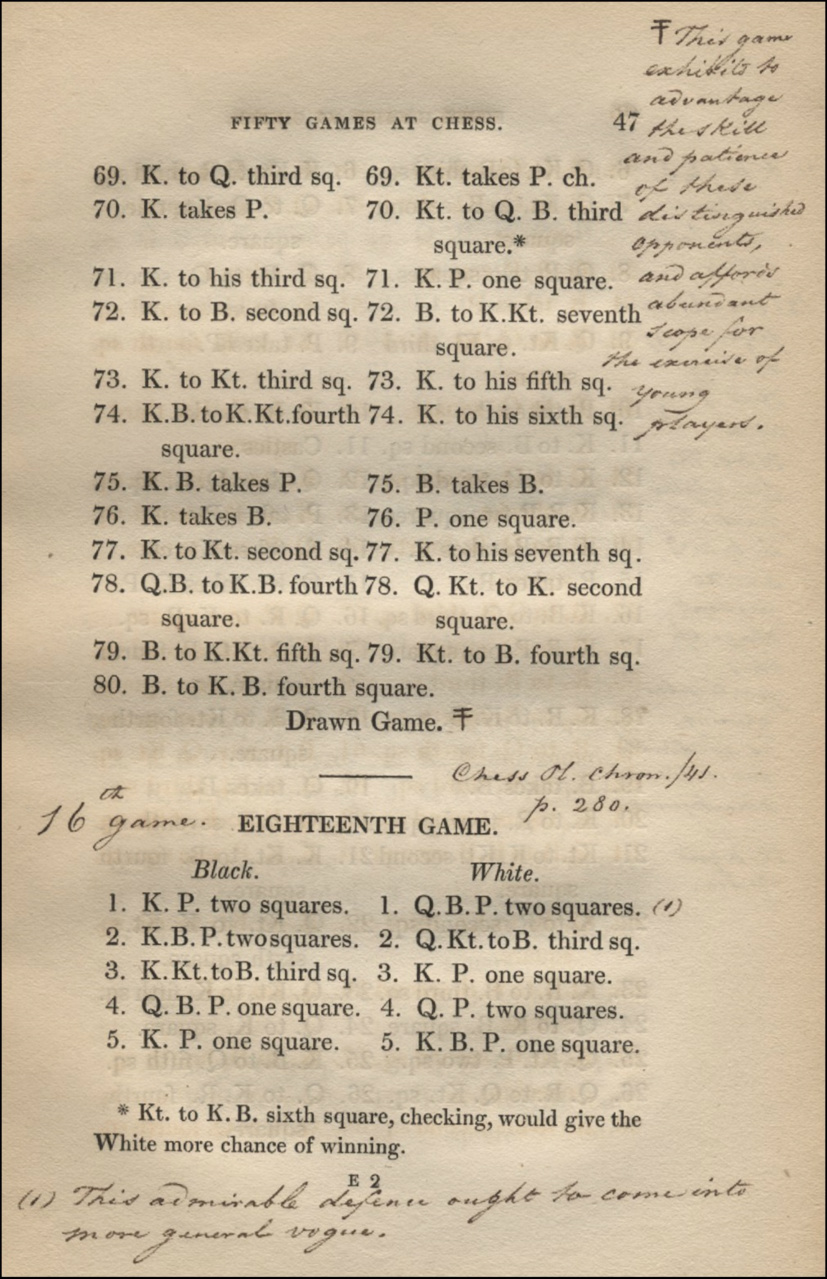 Ŧ This game
exhibits to
advantage
FIFTY GAMES AT CHESS. 47
the skill
and patience
of these
distinguished
opponents,
and affords
abundant
scope for
the exercise of
young
players.
69. K. to Q. third sq. 69. Kt. takes P. ch.
70. K. takes P. 70. Kt. to Q. B. third
square.*
71. K. to his third sq. 71. K. P. one square.
72. K. to B. second sq. 72. B. to K.Kt. seventh
square.
73. K. to Kt. third sq. 73. K. to his fifth sq.
74. K.B. to K.Kt. fourth 74. K. to his sixth sq.
square.
75. K. B. takes P. 75. B. takes B.
76. K. takes B. 76. P. one square.
77. K. to Kt. second sq. 77. K. to his seventh sq.
78. Q.B. to K.B. fourth 78. Q. Kt. to K. second
square. square.
79. B. to K.Kt. fifth sq. 79. Kt. to B. fourth sq.
80. B. to K. B. fourth square.
Drawn Game. Ŧ
Chess Pl. Chron./41.
p. 280.
16th game. EIGHTEENTH GAME.
Black. White.
1. K. P. two squares. 1. Q.B.P. two squares. (1)
2. K.B.P. two squares. 2. Q.Kt. to B. third sq.
3. K.Kt. to B. third sq. 3. K. P. one square.
4. Q. B. P. one square. 4. Q. P. two squares.
5. K. P. one square. 5. K. B. P. one square.
* Kt. to K. B. sixth square, checking, would give the
White more chance of winning.
E 2
(1) This admirable defence ought to come into
more general vogue.